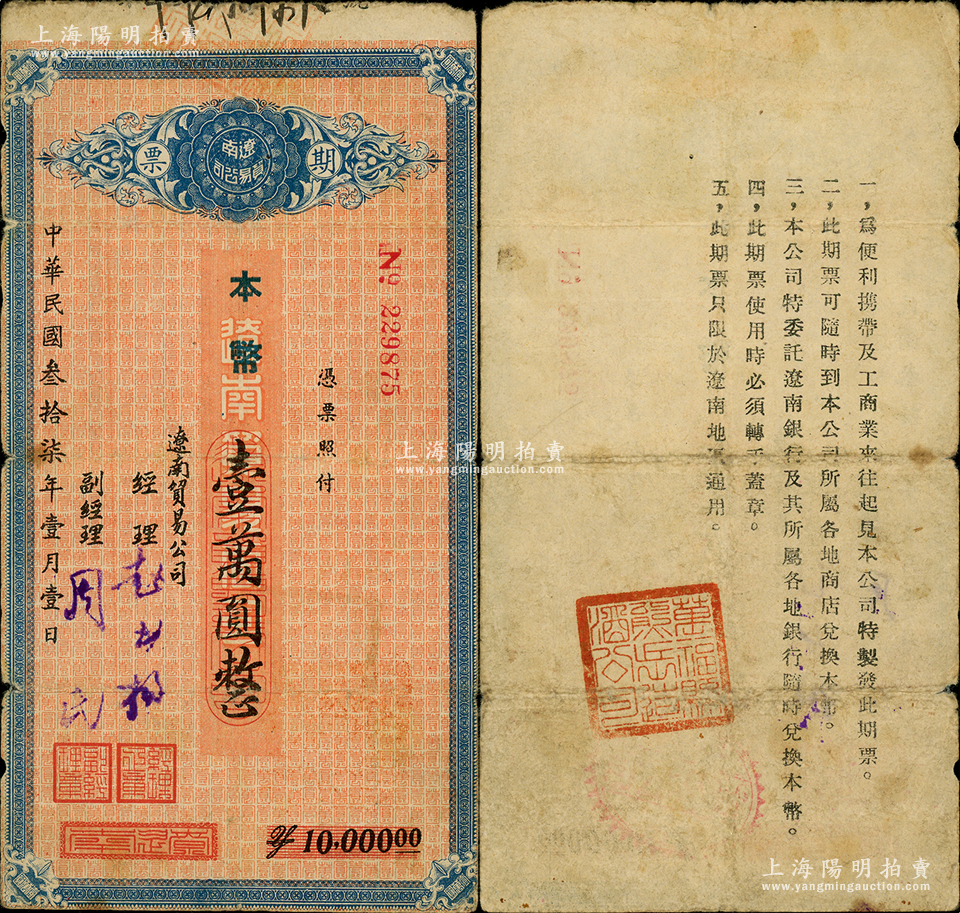 上海陽明拍賣
www.yangmingauction.com
期票
遼南貿易公司
№ 229875
憑票照付
本幣
遼南
壹萬圓整
遼南貿易公司
經理
副經理
周
中華民國叁拾柒年壹月壹日
經理之章
副經理章
10,000.00
一，爲便利携帶及工商業來往起見本公司特製發此期票。
二，此期票可隨時到本公司所屬各地商店兌換本幣。
三，本公司特委託遼南銀行及其所屬各地銀行隨時兌換本幣。
四，此期票使用時必須轉手蓋章。
五，此期票只限於遼南地區通用。
上海陽明拍賣
www.yangmingauction.com
上海陽明拍賣
www.yangmingauction.com